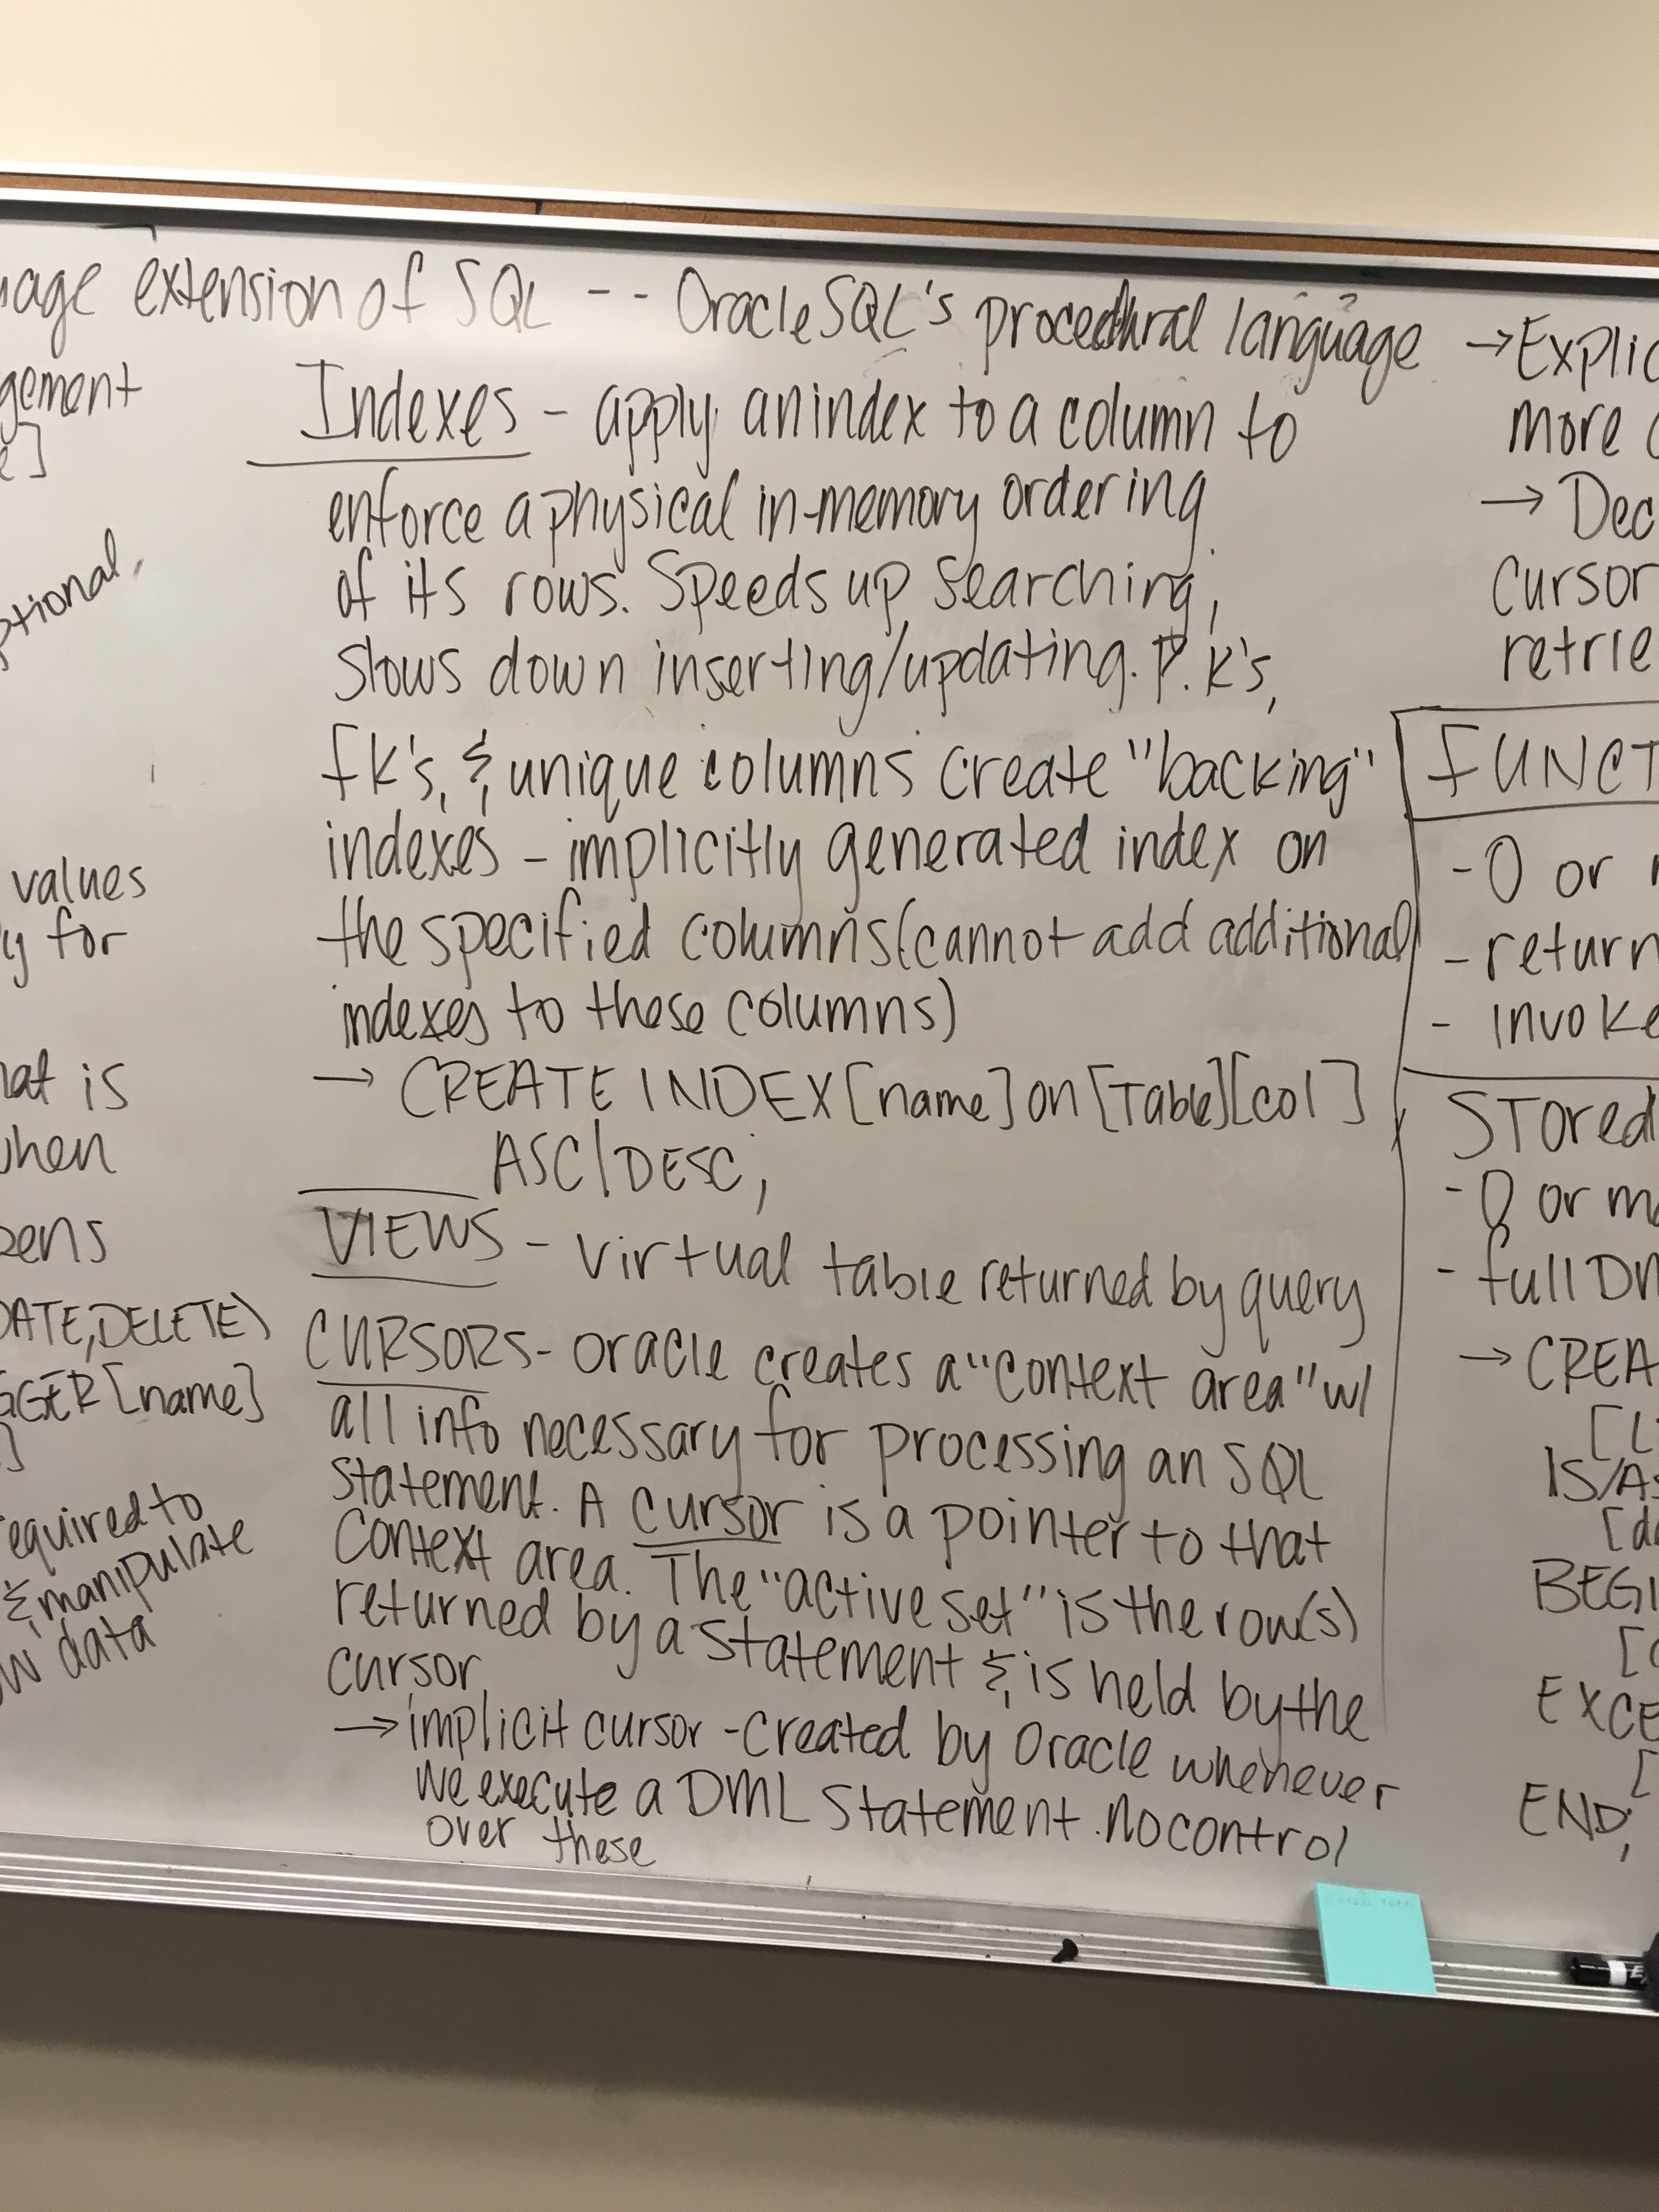 extension of SQL -- Oracle SQL's procedural language
gement
e]
optional,
values
y for
hat is
when
pens
DATE, DELETE)
GGER [name]
]
required to
& manipulate
data
Indexes - apply an index to a column to
enforce a physical in-memory ordering
of its rows. Speeds up searching,
slows down inserting/updating. P.K's,
fk's, & unique columns create "backing"
indexes - implicitly generated index on
the specified columns (cannot add additional
indexes to these columns)
→ CREATE INDEX [name] on [Table][col]
ASC/DESC;
VIEWS - virtual table returned by query
CURSORS - Oracle creates a "context area" w/
all info necessary for processing an SQL
statement. A cursor is a pointer to that
context area. The "active set" is the row(s)
returned by a statement & is held by the
cursor.
→ implicit cursor - created by Oracle whenever
we execute a DML statement. no control
over these
→ Explic
more
→ Dec
cursor
retrie
FUNCT
- 0 or
- return
- invoke
STored
- 0 or mo
- full DM
→ CREA
[L
IS/AS
[de
BEGI
[
EXCE
[
END;